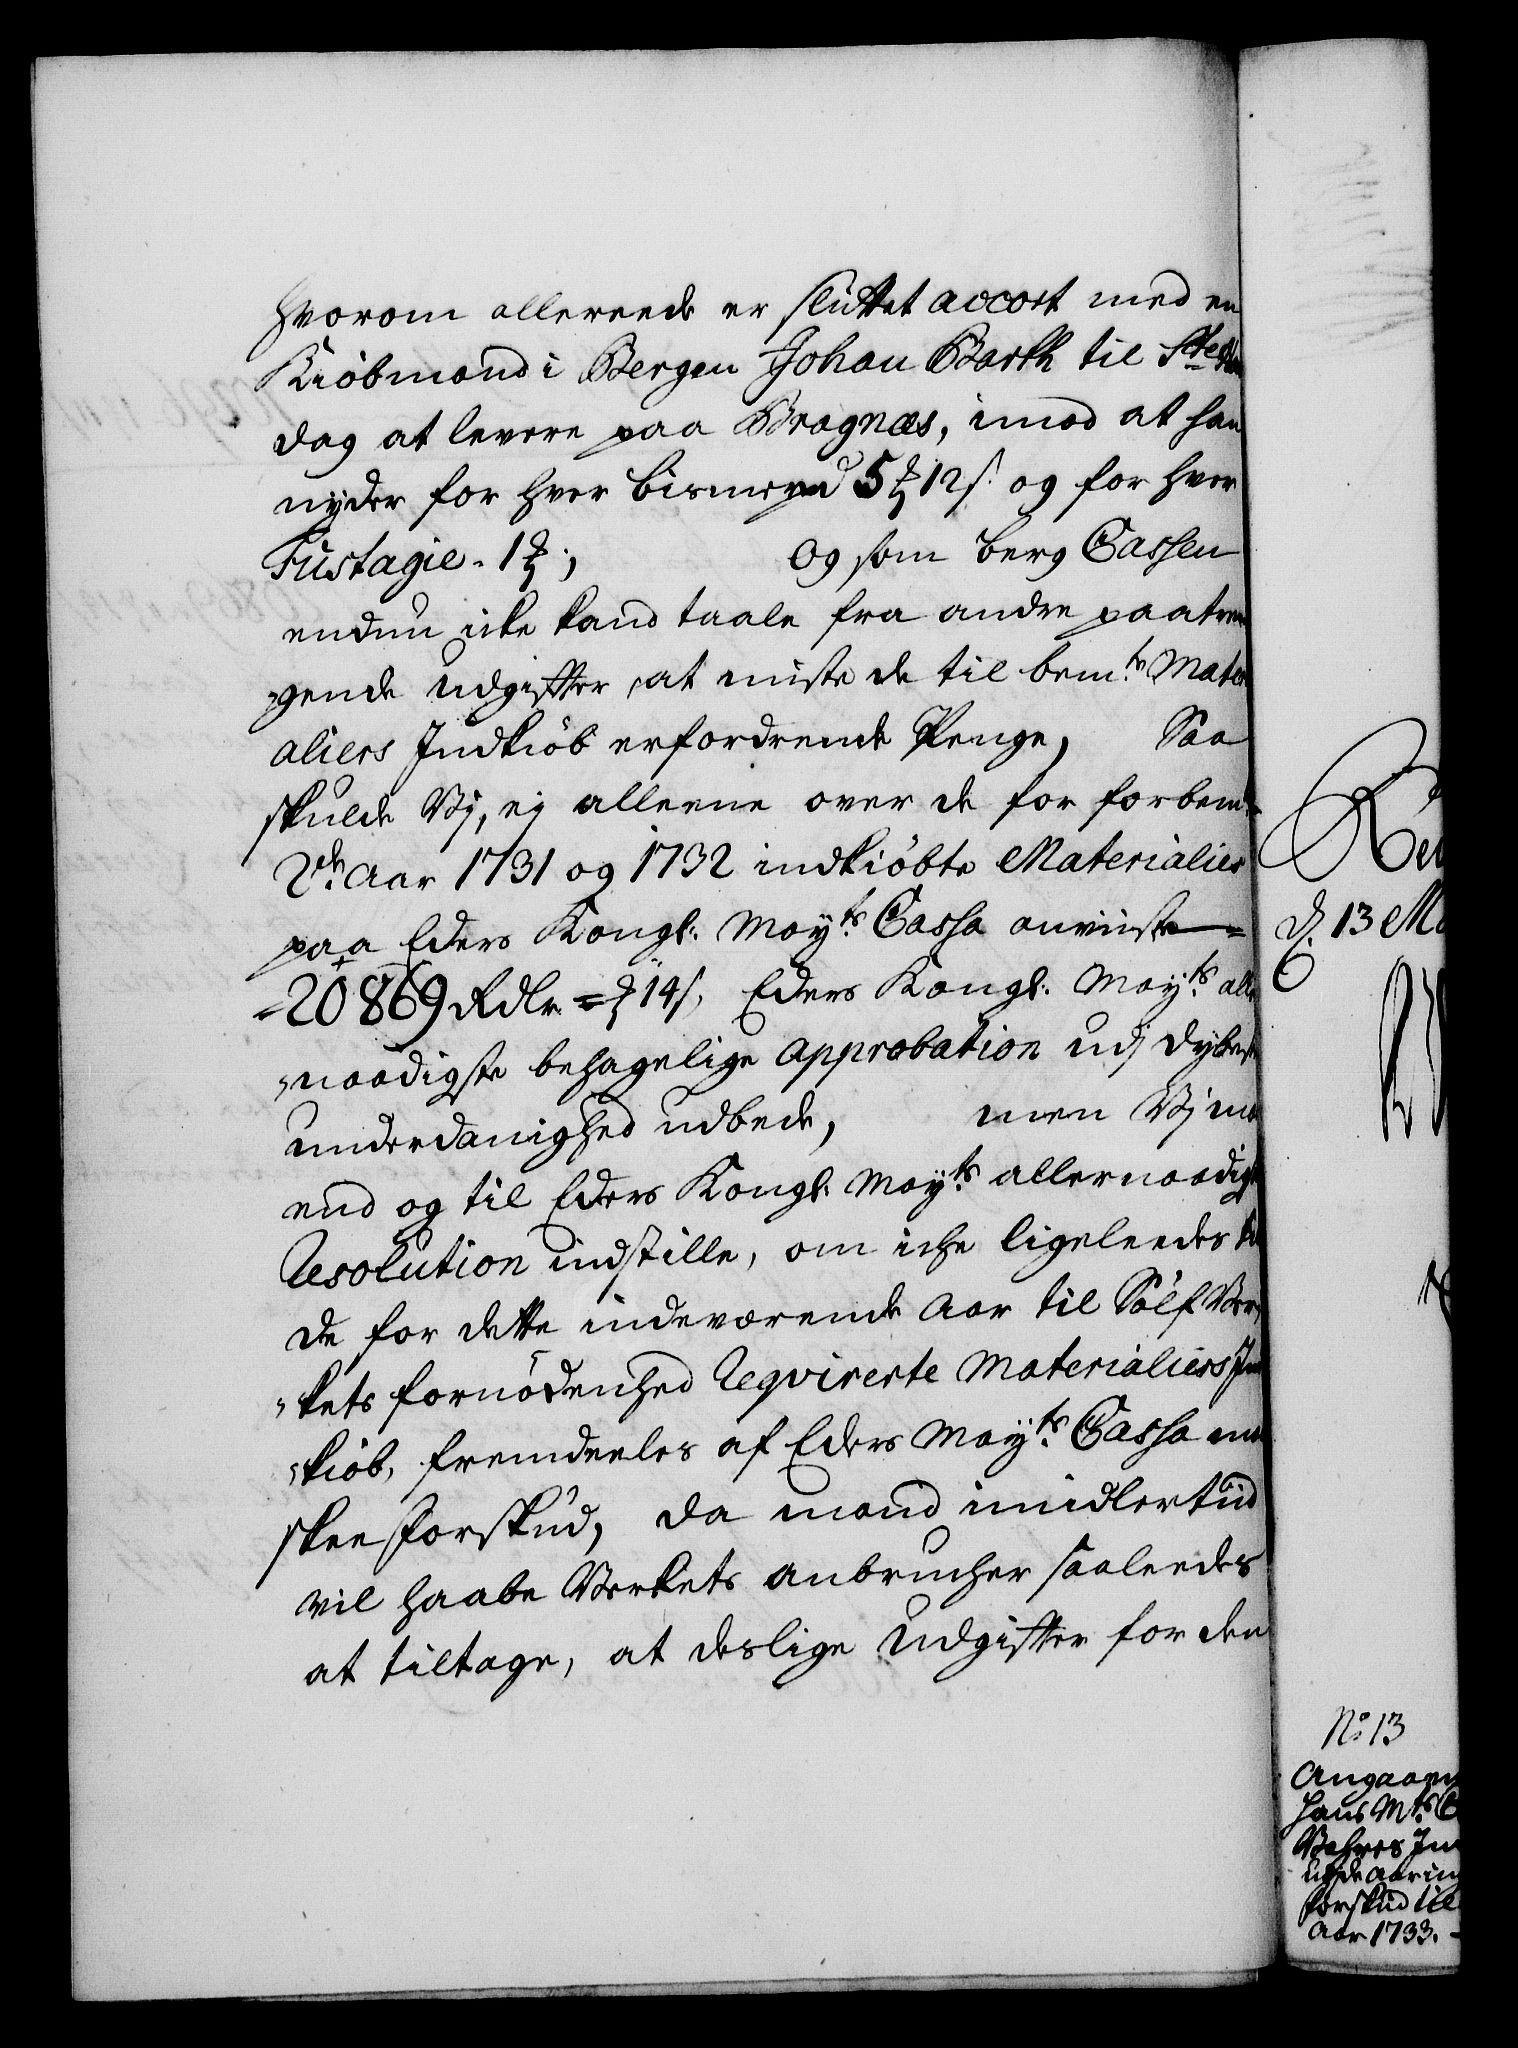 hvorom allereede er sluttet accort med en
Kiöbmand i Bergen Johan Barth til St
dag at levere paa Bragnæs, imod at han
nyder for hver bismerpd 5 12 s. og for hver
Fustagie. 1 ; og som berg Cassen
endnu icke kand taale fra andre paatren
gende udgiffter, at miste de til bemte Mater
aliers Indkiöb erfordrende Penge, Saa
skulde Vj, ej alleene over de for forbemte
2de Aar 1731 og 1732 indkiöbte Materialier
paa Eders Kongl. Mayts Cassa anviiste =
= 20869 Rdlr. = 14 s, Eders Kongl. Mayts aller
naadigste behagelige approbation udj dybeste
underdanighed udbede, men Vj maa
end og til Eders Kongl. Mayts allernaadigst
Resolution indstille, om iche ligeleedes til
de for dette indeværende Aar til Sölf Ver
kets fornödenhed Reqvirerte Materialiers Ind
kiöb, fremdeeles af Eders Mayts Cassa maa
skee forskud, da mand imidlertiid
vil haabe Verkets anbrucher saaleedes
at tiltage, at deslige udgiffter for den
d. 13 Ma
No 13
Angaaen
Hans Mts C
Aar 1733.